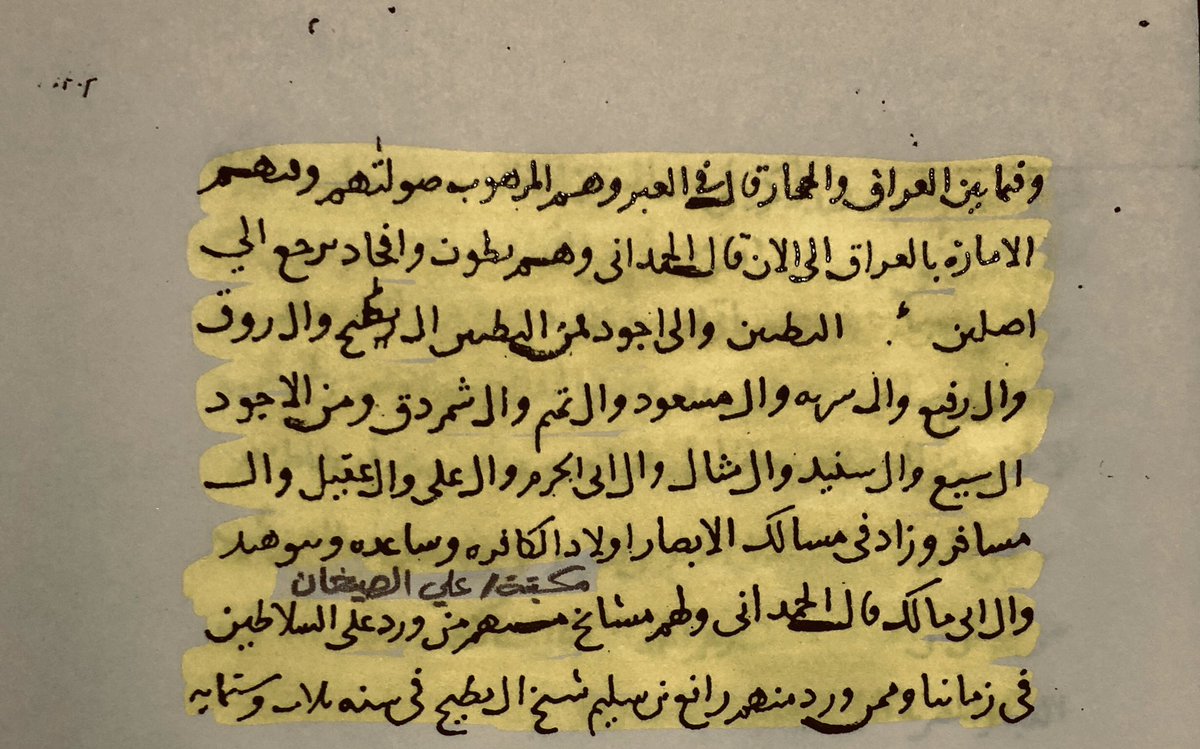 ٢٠٢
وفيما بين العراق والحجاز قال في العبر وهم المرهوب صولتهم ومنهم
الامارة بالعراق الى الان قال الحمدانى وهم بطون وافخاد يرجع الي
اصلين البطنين والى اجود فمن البطنين ال بطيح وال روق
وال رفيع وال سريه وال مسعود وال تميم وال شمردق ومن الاجود
ال سبيع وال سنيد وال شال وال ابى الجرم وال على وال عقيل وال
مسافر وزاد فى مسالك الابصار اولاد الكافره وساعده
مكتبة / علي الصيخان
وال ابى مالك قال الحمدانى ولهم مشايخ منهم من ورد على السلاطين
فى زماننا وممن ورد منهم رافع بن سليم شيخ ال بطيح فى سنه ثلاث وستمايه